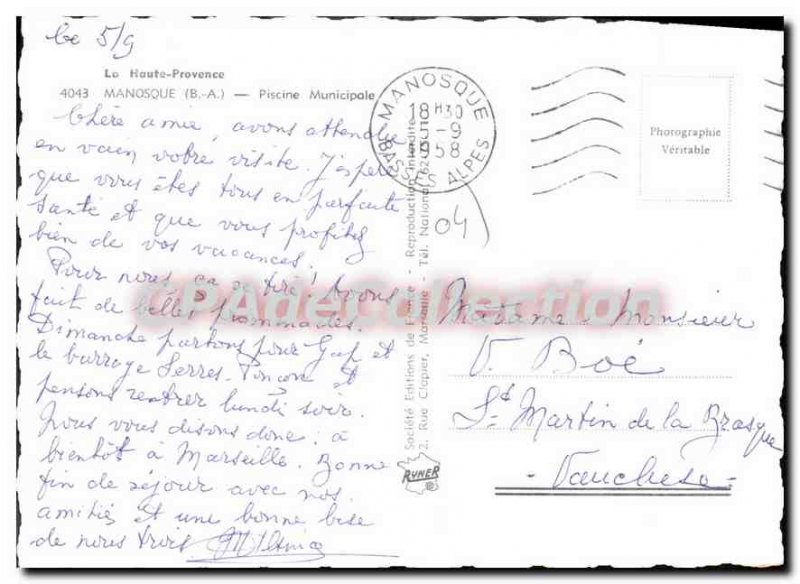 Le 5/9
La Haute-Provence
4043 MANOSQUE (B.-A.) — Piscine Municipale
Chère amie, avons attendu
en vain votre visite. J'espère
que vous êtes tous en parfaite
santé et que vous profitez
bien de vos vacances.
Pour nous, ça se tire! Avons
fait de belles promenades.
Dimanche partons pour Gap et
le barrage Serres-Ponçon et
pensons rentrer lundi soir.
Nous vous disons donc: à
bientôt à Marseille. Bonne
fin de séjour avec nos
amitiés et une bonne bise
de nous trois.
MANOSQUE
18H30
5-9
1958
BASSES ALPES
04
Photographie
Véritable
Société Editions de France - Reproduction interdite
2, Rue Clapier, Marseille - Tél. National 62
RYNER
CPAdeCollection
Madame Monsieur
V. Boé
St Martin de la Brasque
- Vaucluse -